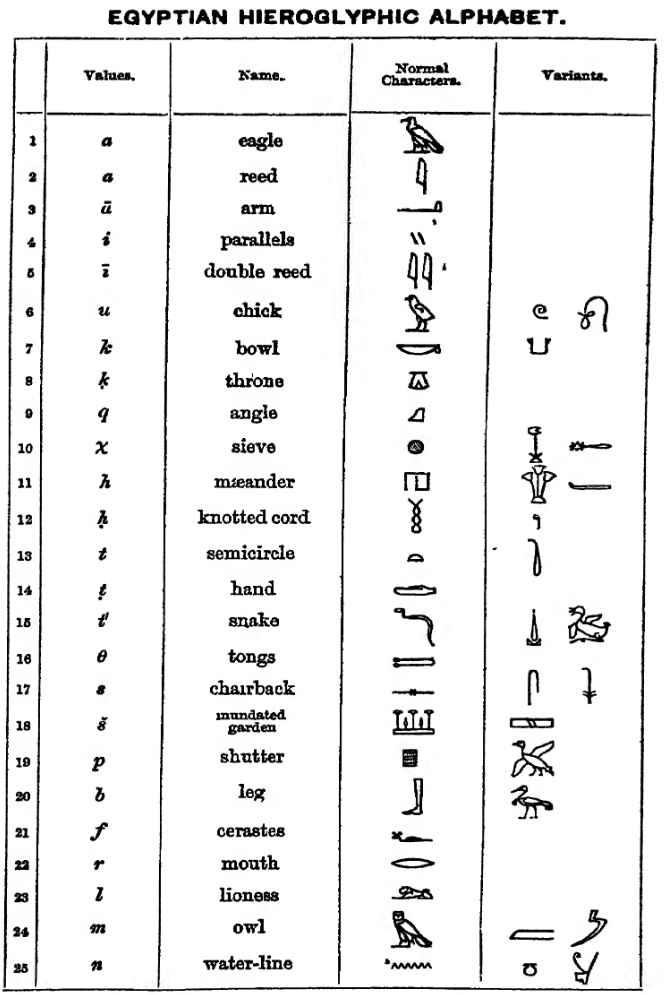 EGYPTIAN HIEROGLYPHIC ALPHABET.
Values. Name. Normal Characters. Variants.
1 a eagle
2 a reed
3 ā arm
4 i parallels
5 ī double reed
6 u chick
7 k bowl
8 ḳ throne
9 q angle
10 χ sieve
11 h mæander
12 ḥ knotted cord
13 t semicircle
14 ṭ hand
15 t' snake
16 θ tongs
17 s chairback
18 š inundated garden
19 p shutter
20 b leg
21 f cerastes
22 r mouth
23 l lioness
24 m owl
25 n water-line